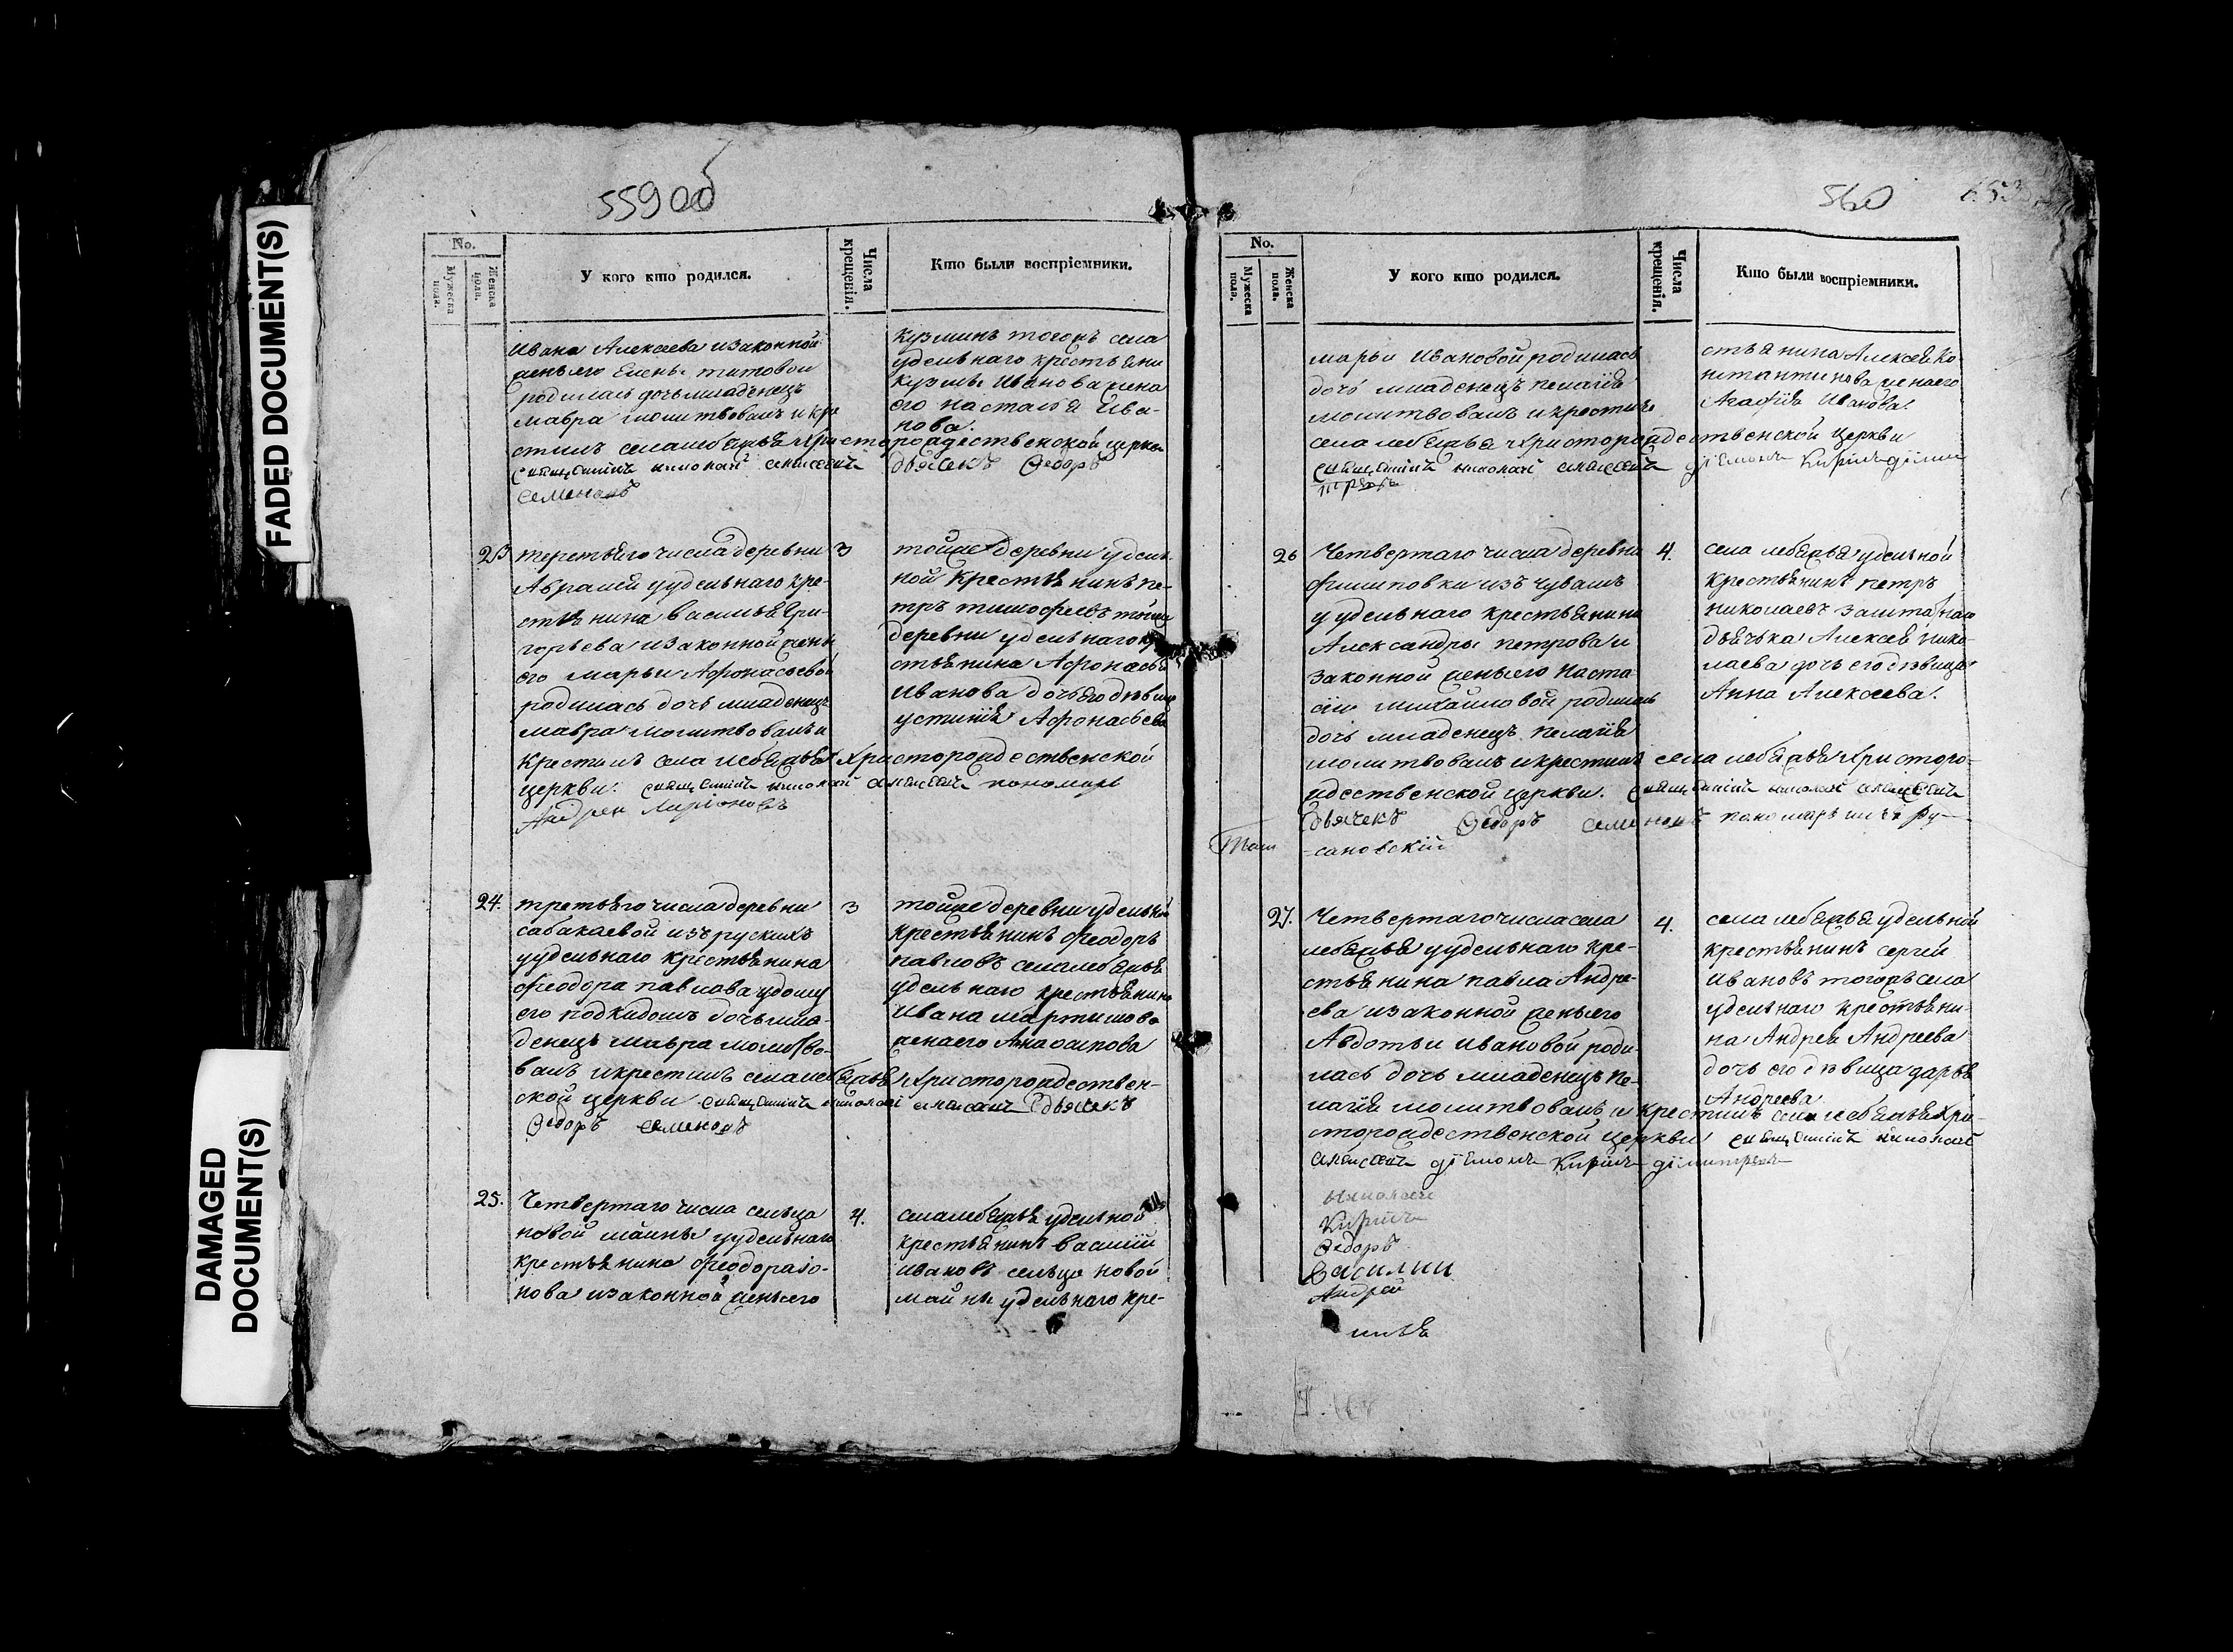 FADED DOCUMENT(S)
DAMAGED
DOCUMENT(S)
559 об
No.
Мужеска пола.
Женска пола.
У кого кто родился.
Числа крещенія.
Кто были воспріемники.
Ивана Алексеева изаконной
женыего Елены титовой
родилась дочь младенецъ
мавра молитвовалъ и кре
стилъ села лебяжья Христорождественской церкви
священникъ николай алексеевъ дьячекъ Ѳедоръ
Семеновъ
кузминъ тогожъ села
удельнаго крестьяни
кузмы Иванова жена
его насталья Ива-
нова.
23
теретьяго числа деревни
Авралей уудельнаго кре-
стьянина василья Гри-
горьева изаконной жены
его марьи Афонасьевой
родилась дочь младенецъ
мавра молитвовалъ и
крестилъ села лебяжья Христорождественской
церкви. священникъ николай алексеевъ пономарь
Андреи Ларіоновъ
3
тойже деревни удель
ной крестьянинъ пе-
тръ тимофеевъ тойже
деревни удельнаго кре
стьянина Афонасья
Иванова дочьего девица
устинія Афонасьева
24.
третьяго числа деревни
сабакаевой изъ рускихъ
уудельнаго крестьянина
феодора павлова удому
его подкидомъ дочь мла-
денецъ мавра молитво-
валъ икрестилъ села лебяжья Христорождествен-
ской церкви священникъ николай алексеевъ дьячекъ
Ѳедоръ семеновъ
3
тойже деревни удельной
крестьянинъ феодоръ
павловъ села лебяжья
удельнаго крестьянина
Ивана мартинова
женаего Анна осипова
25.
Четвертаго числа сельца
новой майны уудельнаго
крестьянина феодора іо-
нова изаконной женыего
4.
села лебяжья удельной
крестьянинъ василій
ивановъ сельца новой
майны удельнаго кре-
560
No.
Мужеска пола.
Женска пола.
У кого кто родился.
Числа крещенія.
Кто были воспріемники.
марьи Ивановой родилась
дочь младенецъ пелагія
молитвовалъ икрестилъ
села лебяжья Христорождественской церкви
священникъ николай алексеевъ діяконъ Кирилъ дими
тревъ
стьянина Алексея Ко-
нстантинова женаего
Агафія Иванова.
26
Четвертаго числа деревни
филиповки изъ чувашъ
уудельнаго крестьянина
Александры петрова и
законной женыего Наста
сіи михайловой родилась
дочь младенецъ пелагія
молитвовалъ икрестилъ села лебяжья Христоро-
ждественской церкви. священникъ николай алексеевъ
дьячекъ Ѳедоръ семеновъ пономарь илья Ру-
сановскій
4.
села лебяжья удельной
крестьянинъ петръ
николаевъ заштатнаго
дьячька Алексея нико-
лаева дочь его девица
Анна Алексеева.
27.
Четвертаго числа села
лебяжья уудельнаго кре-
стьянина павла Андре-
ева изаконной женыего
Авдотьи Ивановой роди-
лась дочь младенецъ пе-
лагія молитвовалъ и крестилъ села лебяжья Хри-
сторождественской церкви священникъ николай
алексеевъ діяконъ Кирилъ димитревъ
4.
села лебяжья удельной
крестьянинъ сергей
Ивановъ тогожъ села
удельнаго крестьяни-
на Андрея Андреева
дочь его девица дарья
Андреева
николай
Кирилъ
Ѳедоръ
Василии
Андрей
илья